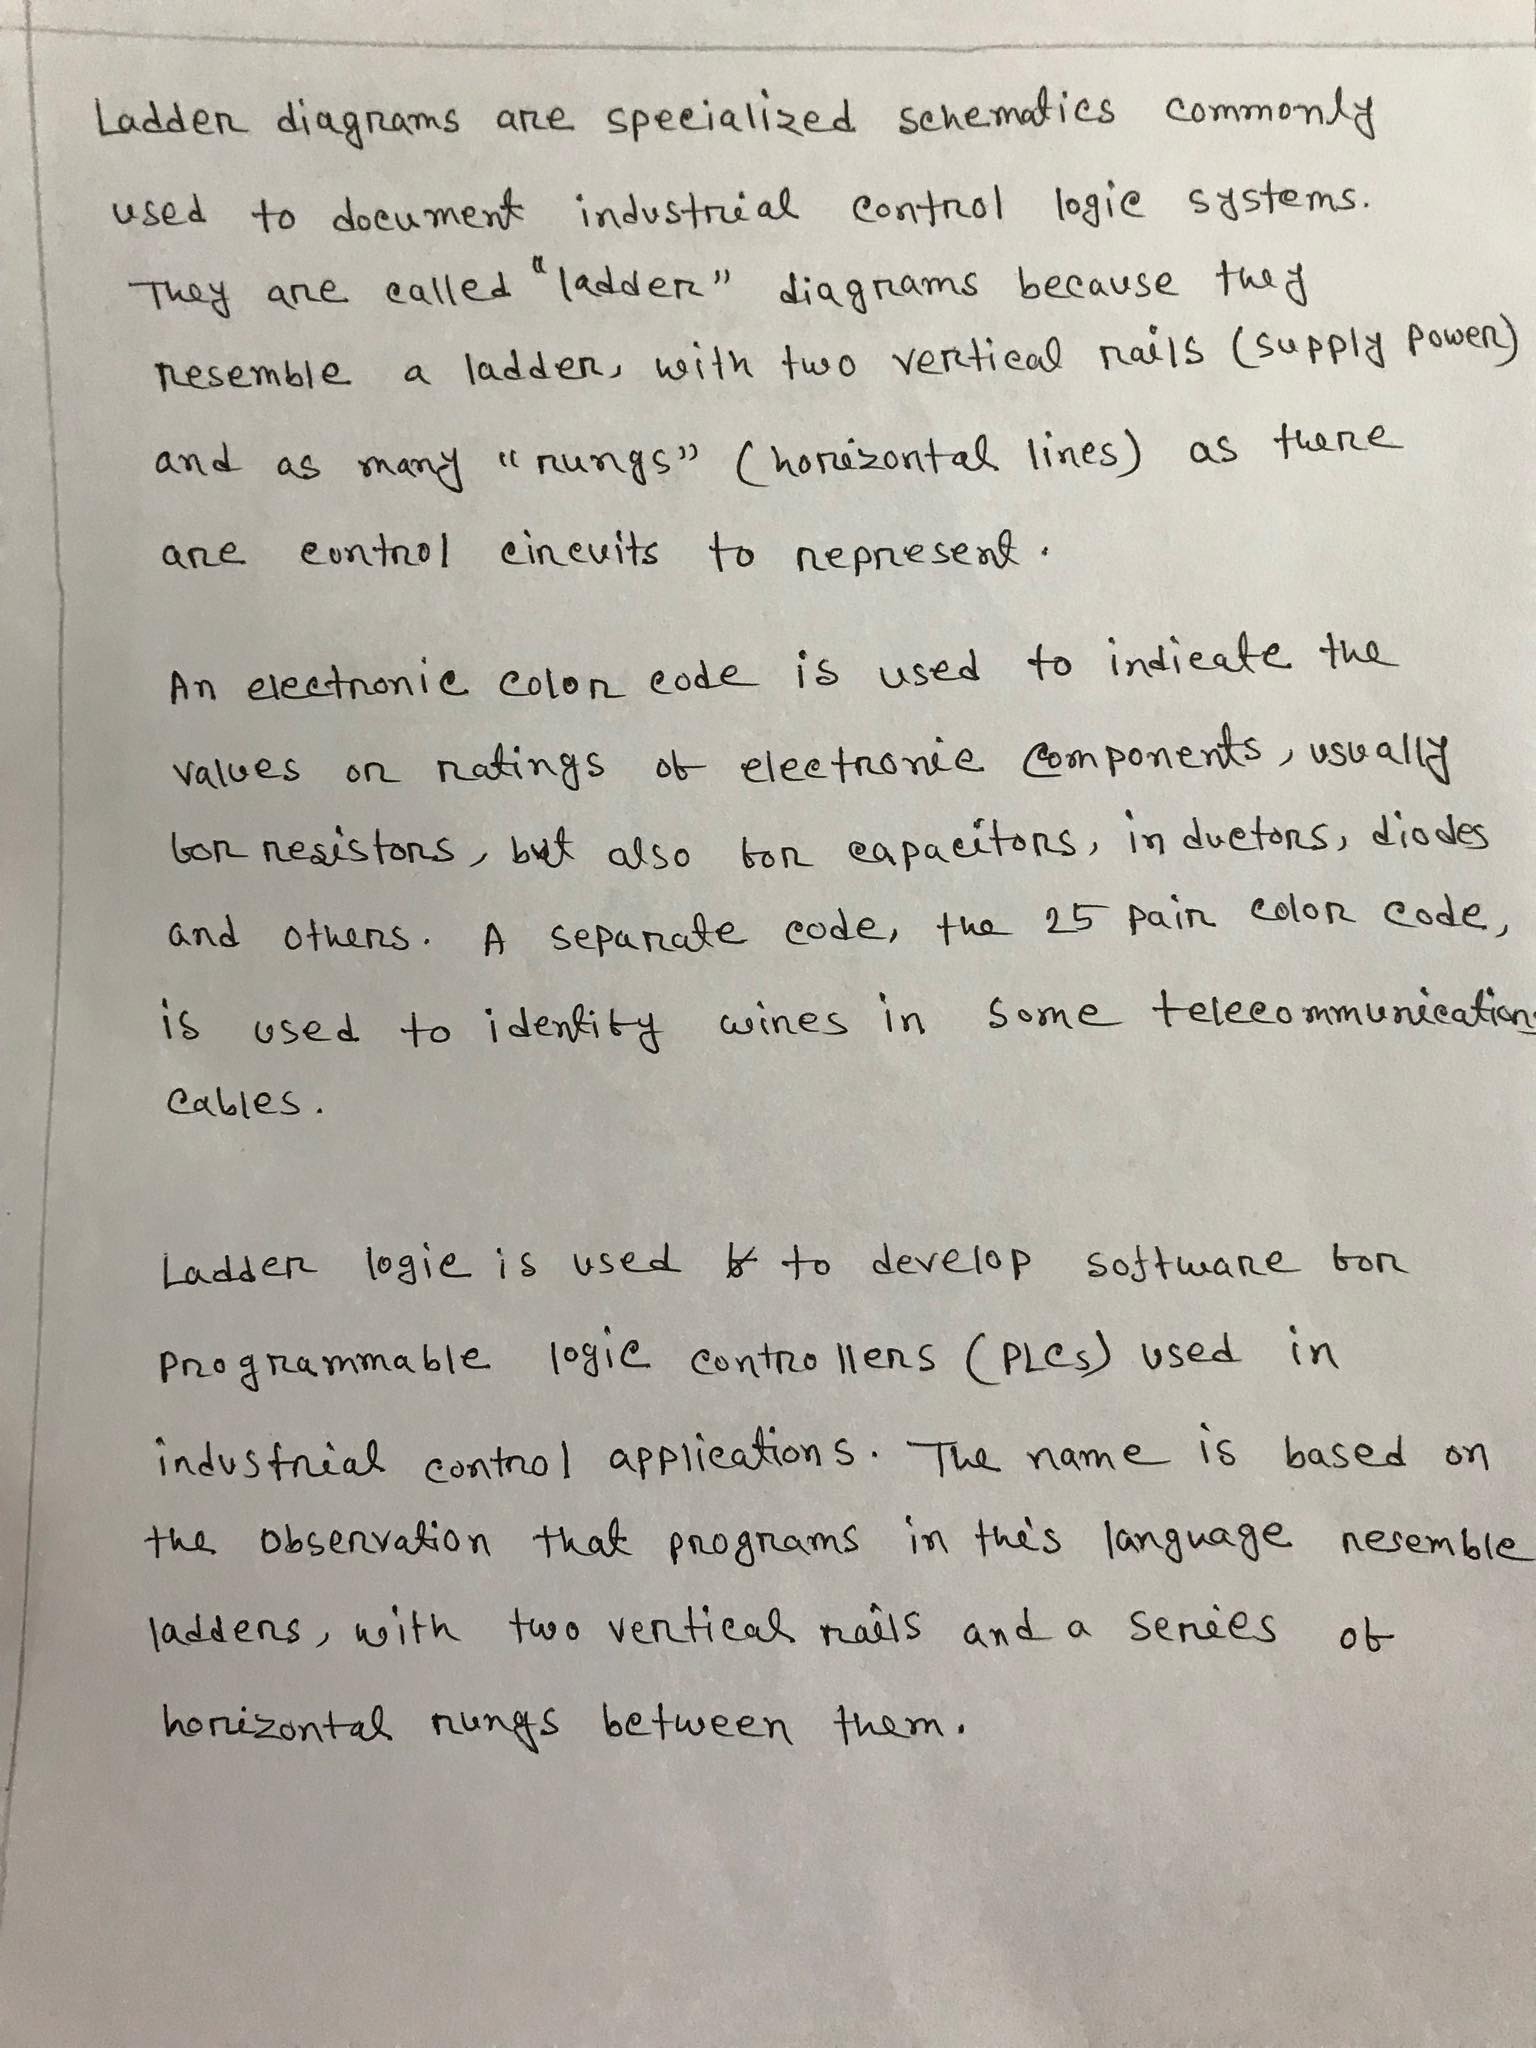 Ladder diagrams are specialized schematics commonly
used to document industrial control logic systems.
They are called "ladder" diagrams because they
resemble a ladder, with two vertical rails (supply power)
and as many "rungs" (horizontal lines) as there
are control circuits to represent.
An electronic color code is used to indicate the
values or ratings of electronic components, usually
for resistors, but also for capacitors, inductors, diodes
and others. A separate code, the 25 pair color code,
is used to identify wires in some telecommunications
cables.
Ladder logic is used to develop software for
programmable logic controllers (PLCs) used in
industrial control applications. The name is based on
the observation that programs in this language resemble
ladders, with two vertical rails and a series of
horizontal rungs between them.